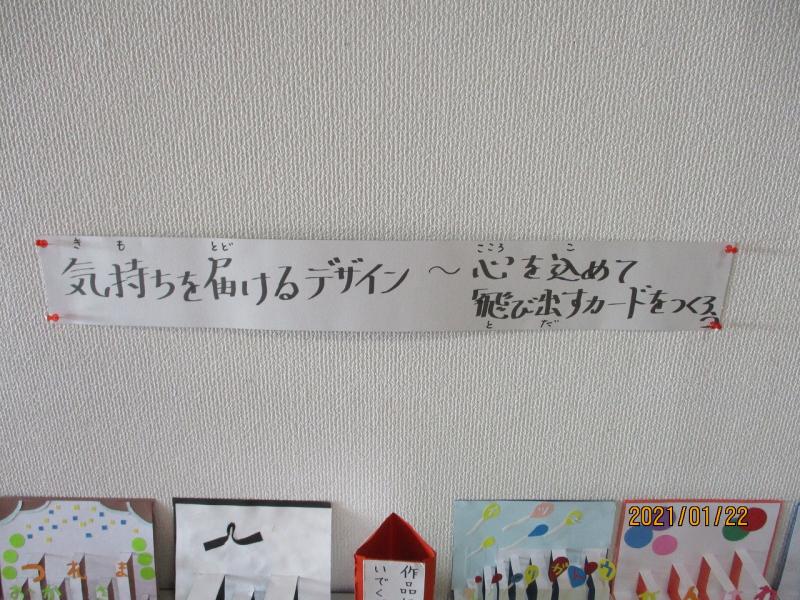 気持ちを届けるデザイン ～ 心を込めて
飛び出すカードをつくろう
き も とど こころ こ
と だ
つれま
作品
いでく
2021/01/22